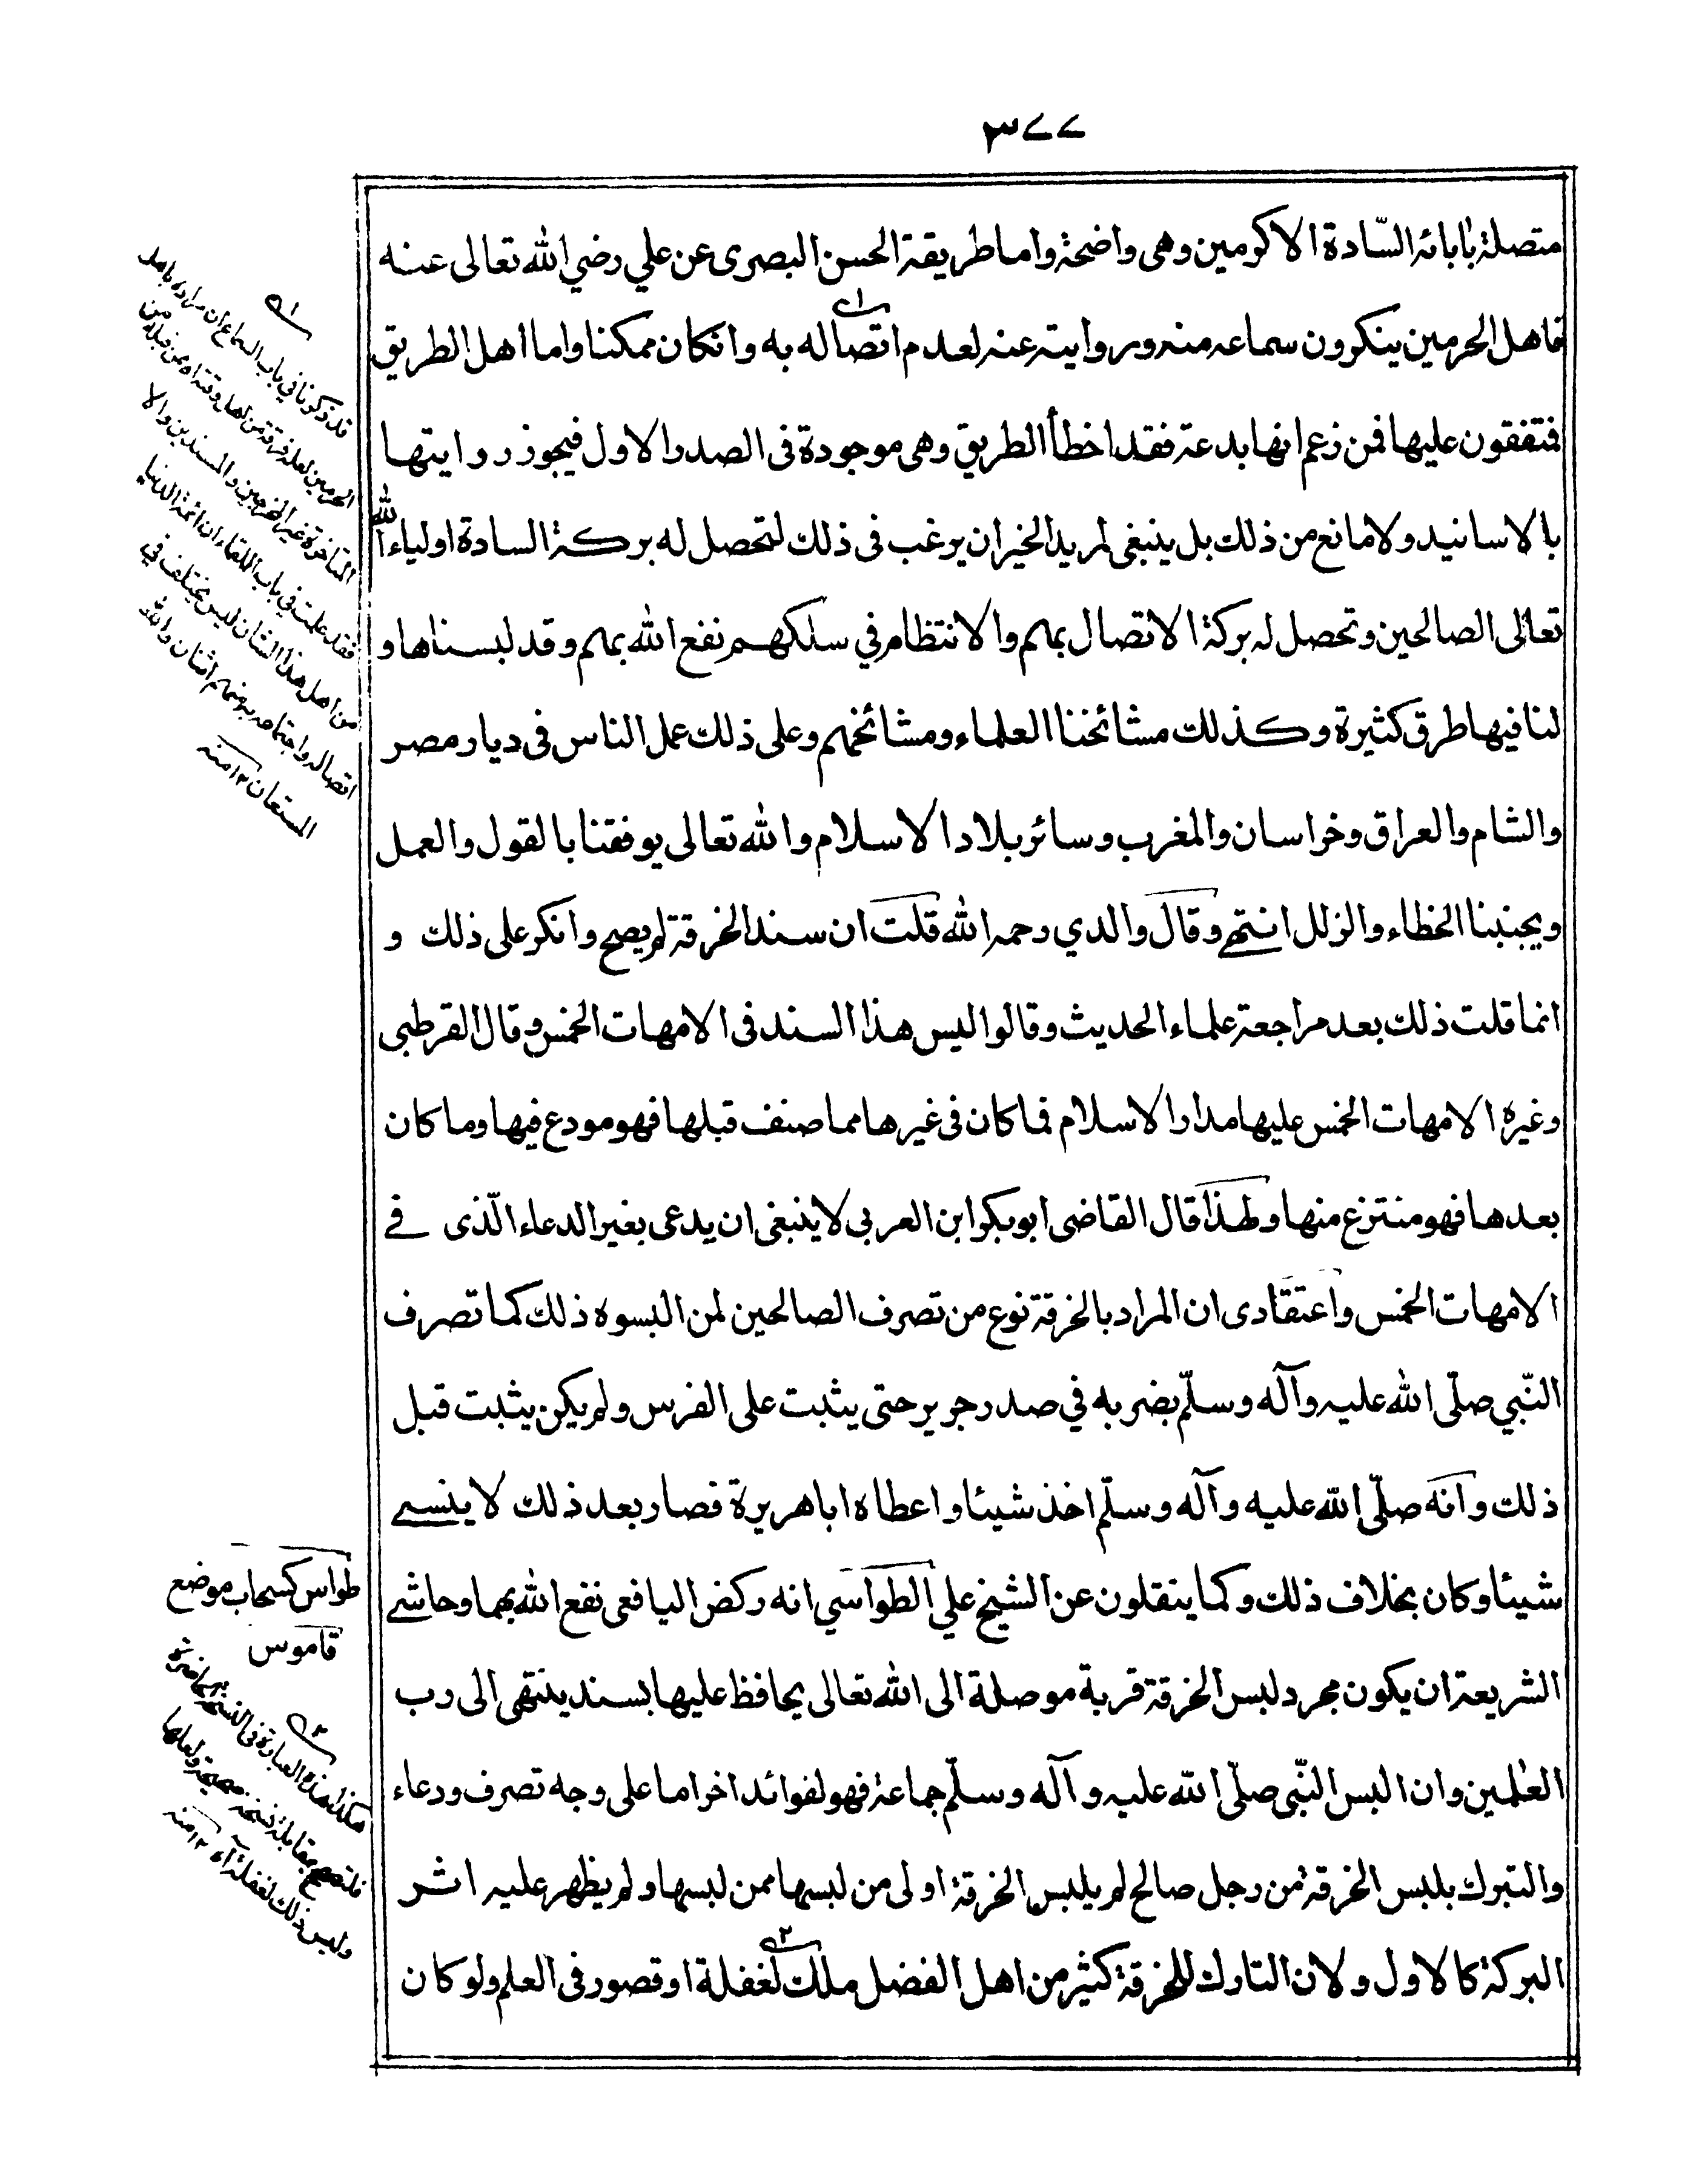 ٣٧٧
متصلة بابائه السّادة الاكرمين وهى واضحة واما طريقة الحسن البصرى عن علي رضي الله تعالى عنه
فاهل الحرمين ينكرون سماعه منه وروايته عنه لعدم اتصاله به وانكان ممكنا واما اهل الطريق
فمتفقون عليها فمن زعم انها بدعة فقد اخطأ الطريق وهى موجودة فى الصدر الاول فيجوز روايتها
بالاسانيد ولا مانع من ذلك بل ينبغى لمريد الخير ان يرغب فى ذلك لتحصل له بركة السادة اولياء الله
تعالى الصالحين وتحصل له بركة الاتصال بهم والانتظام في سلكهم نفع الله بهم وقد لبسناها و
لنا فيها طرق كثيرة وكذلك مشائخنا العلماء ومشائخهم وعلى ذلك عمل الناس فى ديار مصر
والشام والعراق وخراسان والمغرب وسائر بلاد الاسلام والله تعالى يوفقنا بالقول والعمل
ويجنبنا الخطاء والزلل انتهى وقال والدي رحمه الله قلت ان سند الخرقة لم يصح وانكر على ذلك و
انما قلت ذلك بعد مراجعة علماء الحديث وقالوا ليس هذا السند فى الامهات الخمس وقال القرطبى
وغيره الامهات الخمس عليها مدار الاسلام فما كان فى غيرها مما صنف قبلها فهو مودع فيها وما كان
بعدها فهو منتزع منها ولهذا قال القاضى ابوبكر ابن العربى لا ينبغى ان يدعى بغير الدعاء الّذى فے
الامهات الخمس واعتقادى ان المراد بالخرقة نوع من تصرف الصالحين لمن البسوه ذلك كما تصرف
النّبي صلّى الله عليه وآله وسلّم بضربه في صدر جرير حتى يثبت على الفرس ولم يكن يثبت قبل
ذلك وانه صلّى الله عليه وآله وسلّم اخذ شيئا واعطاه اباهريرة فصار بعد ذلك لا ينسے
شيئا وكان بخلاف ذلك وكما ينقلون عن الشيخ علي الطواسي انه ركض اليافعى نفع الله بهما وحاشے
الشريعة ان يكون مجرد لبس الخرقة قربة موصلة الى الله تعالى يحافظ عليها بسند ينتهى الى رب
العٰلمين وان البس النّبى صلّى الله عليه وآله وسلّم جماعة فهو لفوائد اخر اما على وجه تصرف ودعاء
والتبرك بلبس الخرقة من رجل صالح لم يلبس الخرقة اولى من لبسها ممن لبسها ولم يظهر عليه اثر
البركة كالاول ولان التارك للخرقة كثير من اهل الفضل ملك لغفلة او قصور فى العلم ولو كان
قد ذكرنا في باب السماع ان مراده باهل
الحرمين لعله فرقة من اهل وقته او من قبله من
المتاخرة غير المخرجين والمسندين والا
فقد علمت في باب اللقاء ان ائمة الدنيا
من اهل هذا الشان ليس يختلف في
اتصاله واجتماعه به منهم اثنان والله
المستعان ١٢ منه
طواس كسحاب موضع
قاموس
هكذا هذه العبارة فى النسخة الحاضرة
فلتصحح بمقابلة نسخة صحيحة ولعلها
وليس ذلك لغفلة آه ١٢ منه